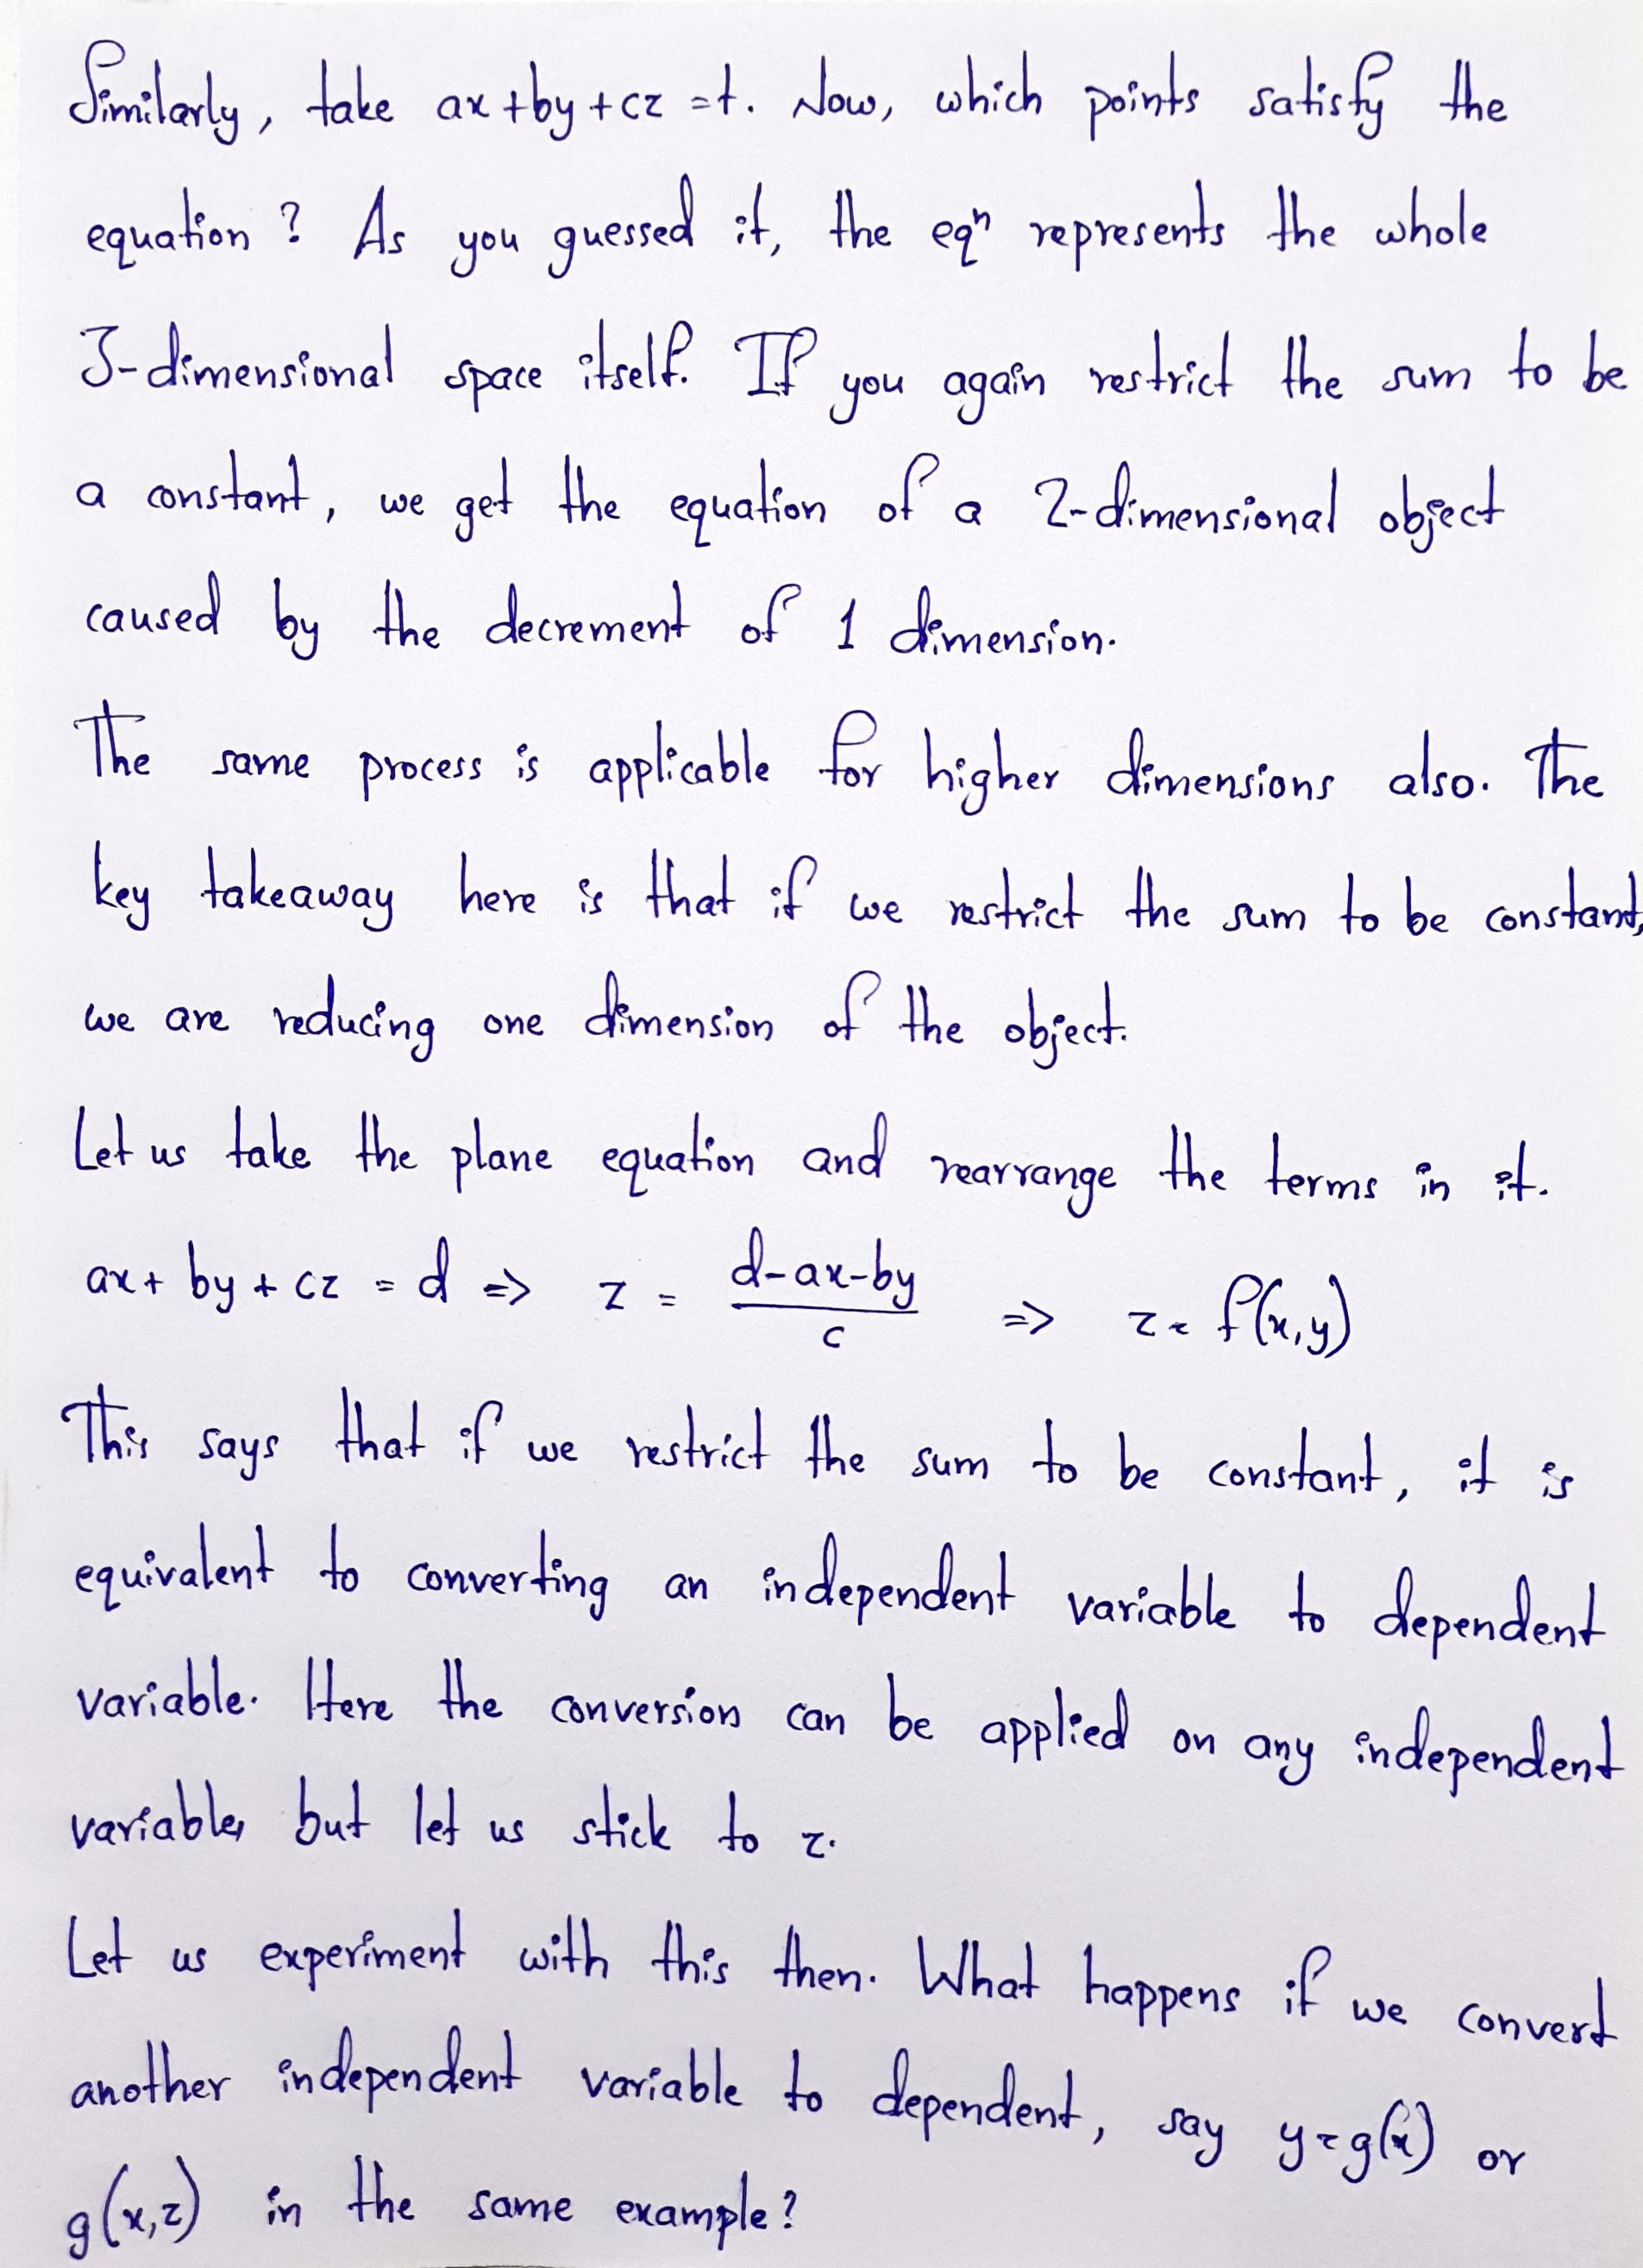 Similarly, take ax+by+cz=t. Now, which points satisfy the
equation? As you guessed it, the eqⁿ represents the whole
3-dimensional space itself. If you again restrict the sum to be
a constant, we get the equation of a 2-dimensional object
caused by the decrement of 1 dimension.
The same process is applicable for higher dimensions also. The
key takeaway here is that if we restrict the sum to be constant,
we are reducing one dimension of the object.
Let us take the plane equation and rearrange the terms in it.
ax + by + cz = d => z = (d-ax-by)/c => z = f(x,y)
This says that if we restrict the sum to be constant, it is
equivalent to converting an independent variable to dependent
variable. Here the conversion can be applied on any independent
variable, but let us stick to z.
Let us experiment with this then. What happens if we convert
another independent variable to dependent, say y=g(x) or
g(x,z) in the same example?